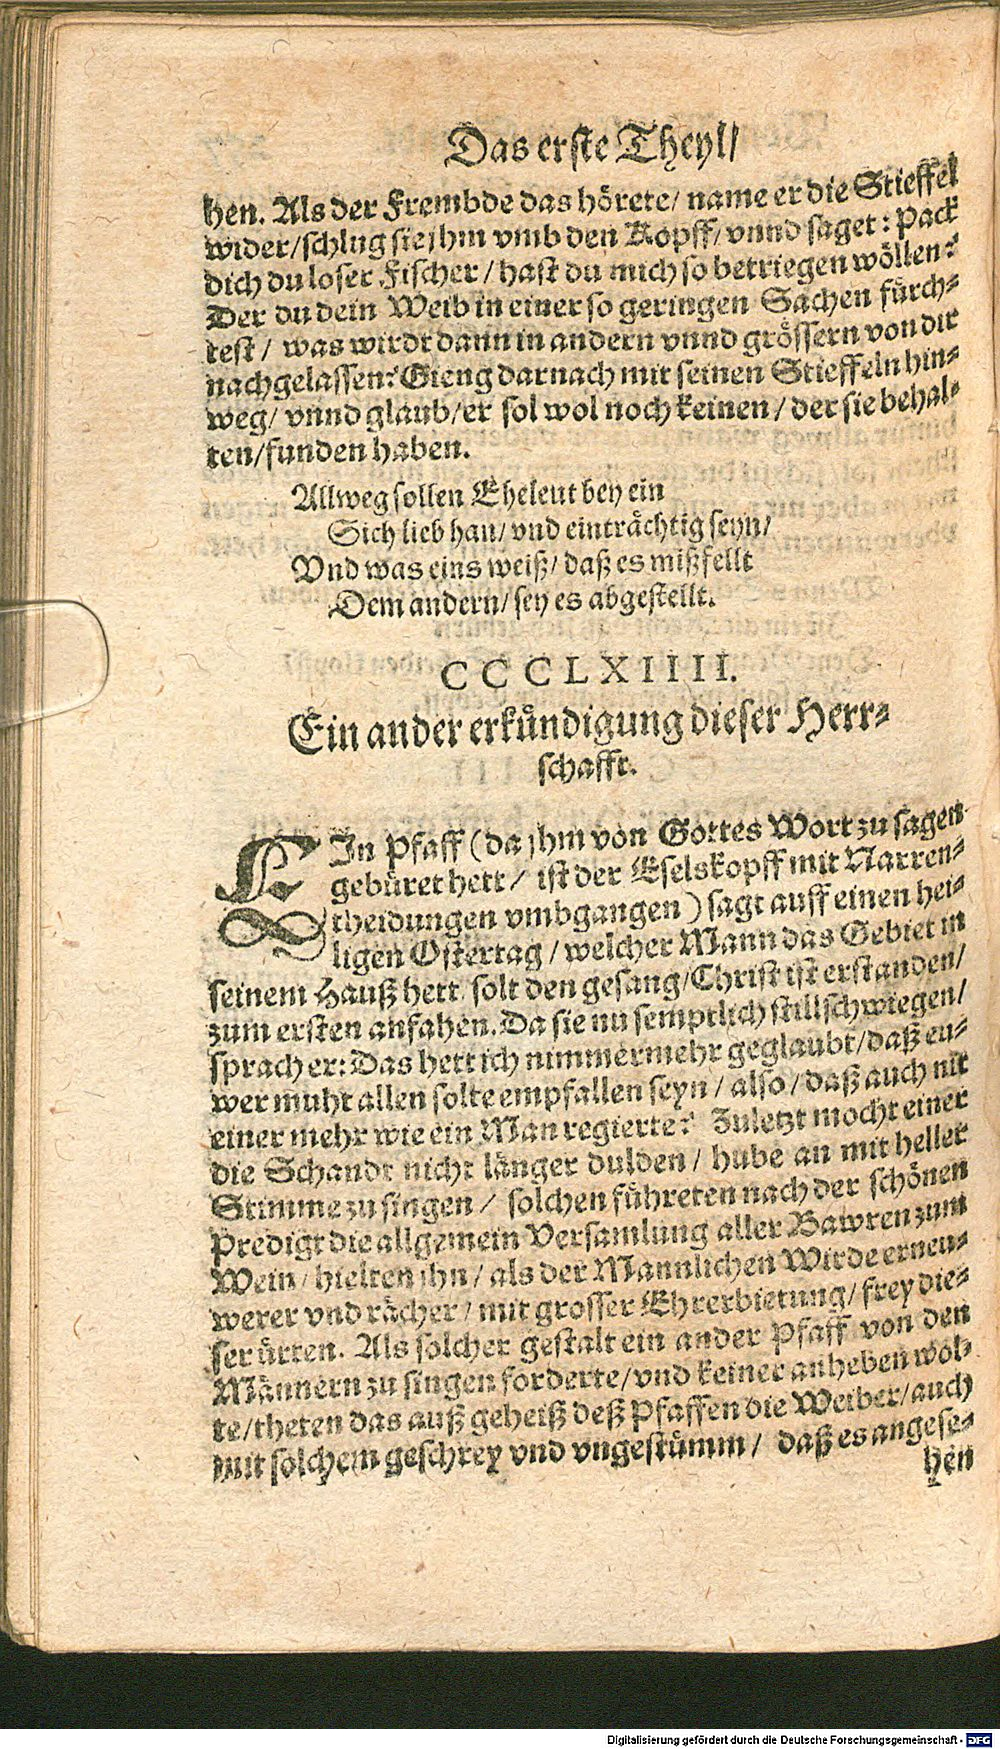 Das erste Theyl/
hen. Als der Frembde das hörete/ name er die Stieffel
wider/schlug sie jhm vmb den Kopff/vnnd saget: Pack
dich du loser Fischer/hast du mich so betriegen wöllen?
Der du dein Weib in einer so geringen Sachen fürch-
test/ was wirdt dann in andern vnnd grössern von dir
nachgelassen? Gieng darnach mit seinen Stieffeln hin-
weg/ vnnd glaub/er sol wol noch keinen/ der sie behal-
ten/funden haben.
Allweg sollen Eheleut bey ein
Sich lieb han/ vnd einträchtig seyn/
Vnd was eins weiß/ daß es mißfellt
Dem andern/ sey es abgestellt.
CCCLXIIII.
Ein ander erkündigung dieser Herr-
schafft.
EIn Pfaff (da jhm von Gottes Wort zu sagen
gebüret hett/ ist der Eselskopff mit Narren-
theidungen vmbgangen) sagt auff einen hei-
ligen Ostertag/ welcher Mann das Gebiet in
seinem Hauß hett/ solt den gesang/Christ ist erstanden/
zum ersten anfahen. Da sie nu semptlich stillschwiegen/
sprach er: Das hett ich nimmermehr geglaubt/daß eu-
wer muht allen solte empfallen seyn/ also/ daß auch nit
einer mehr wie ein Man regierte? Zuletzt mocht einer
die Schandt nicht länger dulden/ hube an mit heller
Stimme zu singen/ solchen führeten nach der schönen
Predigt die allgemein Versamlung aller Bawren zum
Wein/ hielten jhn/ als der Mannlichen Wirde erneu-
werer vnd rächer/ mit grosser Ehrerbietung/ frey die-
ser ürten. Als solcher gestalt ein ander Pfaff von den
Männern zu singen forderte/vnd keiner anheben wol-
te/theten das auß geheiß deß Pfaffen die Weiber/auch
mit solchem geschrey vnd vngestümm/ daß es angese-
hen
Digitalisierung gefördert durch die Deutsche Forschungsgemeinschaft - DFG